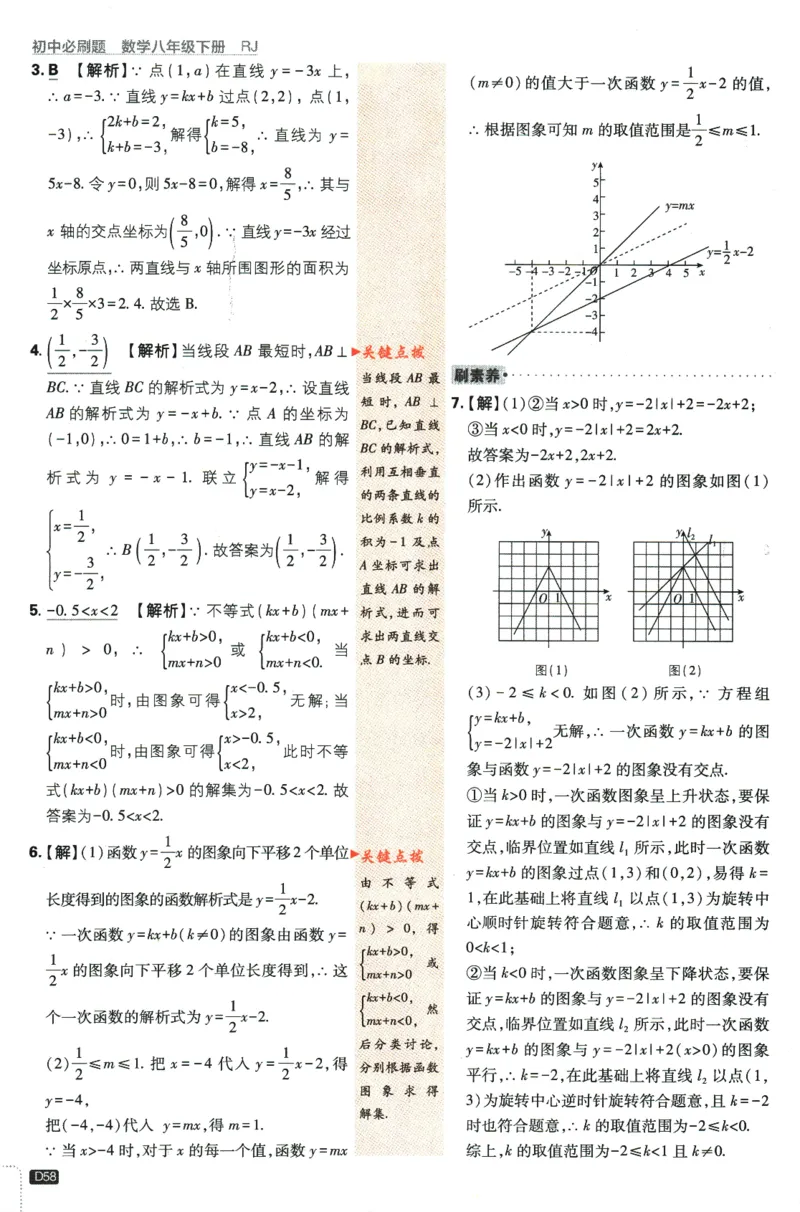 初中必刷题 数学八年级下册 RJ
3. B 【解析】∵ 点(1,a)在直线 y=-3x 上,
∴ a=-3. ∵ 直线 y=kx+b 过点(2,2),点(1,
-3),∴ {2k+b=2, k+b=-3, 解得 {k=5, b=-8, ∴ 直线为 y=
5x-8. 令 y=0,则 5x-8=0,解得 x=8/5,∴ 其与
x 轴的交点坐标为(8/5,0). ∵ 直线 y=-3x 经过
坐标原点,∴ 两直线与 x 轴所围图形的面积为
1/2×8/5×3=2.4. 故选 B.
4. (1/2,-3/2) 【解析】当线段 AB 最短时,AB⊥
BC. ∵ 直线 BC 的解析式为 y=x-2,∴ 设直线
AB 的解析式为 y=-x+b. ∵ 点 A 的坐标为
(-1,0),∴ 0=1+b,∴ b=-1,∴ 直线 AB 的解
析式为 y=-x-1. 联立 {y=-x-1, y=x-2, 解得
{x=1/2, y=-3/2, ∴ B(1/2,-3/2). 故答案为(1/2,-3/2).
5. -0.5<x<2 【解析】∵ 不等式(kx+b)(mx+
n)>0,∴ {kx+b>0, mx+n>0 或 {kx+b<0, mx+n<0. 当
{kx+b>0, mx+n>0 时,由图象可得 {x<-0.5, x>2, 无解;当
{kx+b<0, mx+n<0 时,由图象可得 {x>-0.5, x<2, 此时不等
式(kx+b)(mx+n)>0 的解集为-0.5<x<2. 故
答案为-0.5<x<2.
6. 【解】(1)函数 y=1/2x 的图象向下平移2个单位
长度得到的图象的函数解析式是 y=1/2x-2.
∵ 一次函数 y=kx+b(k≠0)的图象由函数 y=
1/2x 的图象向下平移 2 个单位长度得到,∴ 这
个一次函数的解析式为 y=1/2x-2.
(2)1/2≤m≤1. 把 x=-4 代入 y=1/2x-2,得
y=-4,
把(-4,-4)代入 y=mx,得 m=1.
∵ 当 x>-4 时,对于 x 的每一个值,函数 y=mx
D58
关键点拨
当线段 AB 最
短时,AB ⊥
BC,已知直线
BC 的解析式,
利用互相垂直
的两条直线的
比例系数 k 的
积为-1 及点
A 坐标可求出
直线 AB 的解
析式,进而可
求出两直线交
点 B 的坐标.
关键点拨
由不等式
(kx+b)(mx+
n)>0,得
{kx+b>0, mx+n>0 或
{kx+b<0, mx+n<0, 然
后分类讨论,
分别根据函数
图象求得
解集.
(m≠0)的值大于一次函数 y=1/2x-2 的值,
∴ 根据图象可知 m 的取值范围是1/2≤m≤1.
y
5
4
3
2
1
y=mx
y=1/2x-2
-5 -4 -3 -2 -1 O 1 2 3 4 5 x
-1
-2
-3
-4
刷素养
7. 【解】(1)②当 x>0 时,y=-2|x|+2=-2x+2;
③当 x<0 时,y=-2|x|+2=2x+2.
故答案为-2x+2,2x+2.
(2)作出函数 y=-2|x|+2 的图象如图(1)
所示.
y
O 1 x
图(1)
y l₂ l₁
O 1 x
图(2)
(3)-2≤k<0. 如图(2)所示,∵ 方程组
{y=kx+b, y=-2|x|+2 无解,∴ 一次函数 y=kx+b 的图
象与函数 y=-2|x|+2 的图象没有交点.
①当 k>0 时,一次函数图象呈上升状态,要保
证 y=kx+b 的图象与 y=-2|x|+2 的图象没有
交点,临界位置如直线 l₁ 所示,此时一次函数
y=kx+b 的图象过点(1,3)和(0,2),易得 k=
1,在此基础上将直线 l₁ 以点(1,3)为旋转中
心顺时针旋转符合题意,∴ k 的取值范围为
0<k<1;
②当 k<0 时,一次函数图象呈下降状态,要保
证 y=kx+b 的图象与 y=-2|x|+2 的图象没有
交点,临界位置如直线 l₂ 所示,此时一次函数
y=kx+b 的图象与 y=-2|x|+2(x>0)的图象
平行,∴ k=-2,在此基础上将直线 l₂ 以点(1,
3)为旋转中心逆时针旋转符合题意,且 k=-2
时也符合题意,∴ k 的取值范围为-2≤k<0.
综上,k 的取值范围为-2≤k<1 且 k≠0.